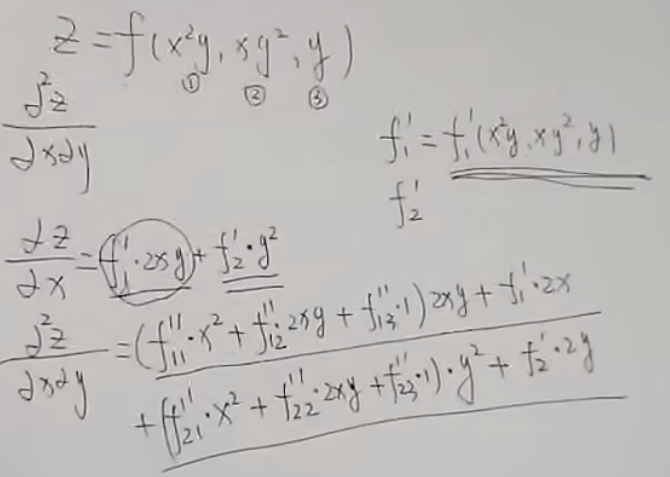 z = f(x²y, xy², y)
① ② ③
∂²z/∂x∂y
f₁' = f₁'(x²y, xy², y)
f₂'
∂z/∂x = f₁'·2xy + f₂'·y²
∂²z/∂x∂y = (f₁₁''·x² + f₁₂''·2xy + f₁₃''·1)2xy + f₁'·2x
+ (f₂₁''·x² + f₂₂''·2xy + f₂₃''·1)·y² + f₂'·2y